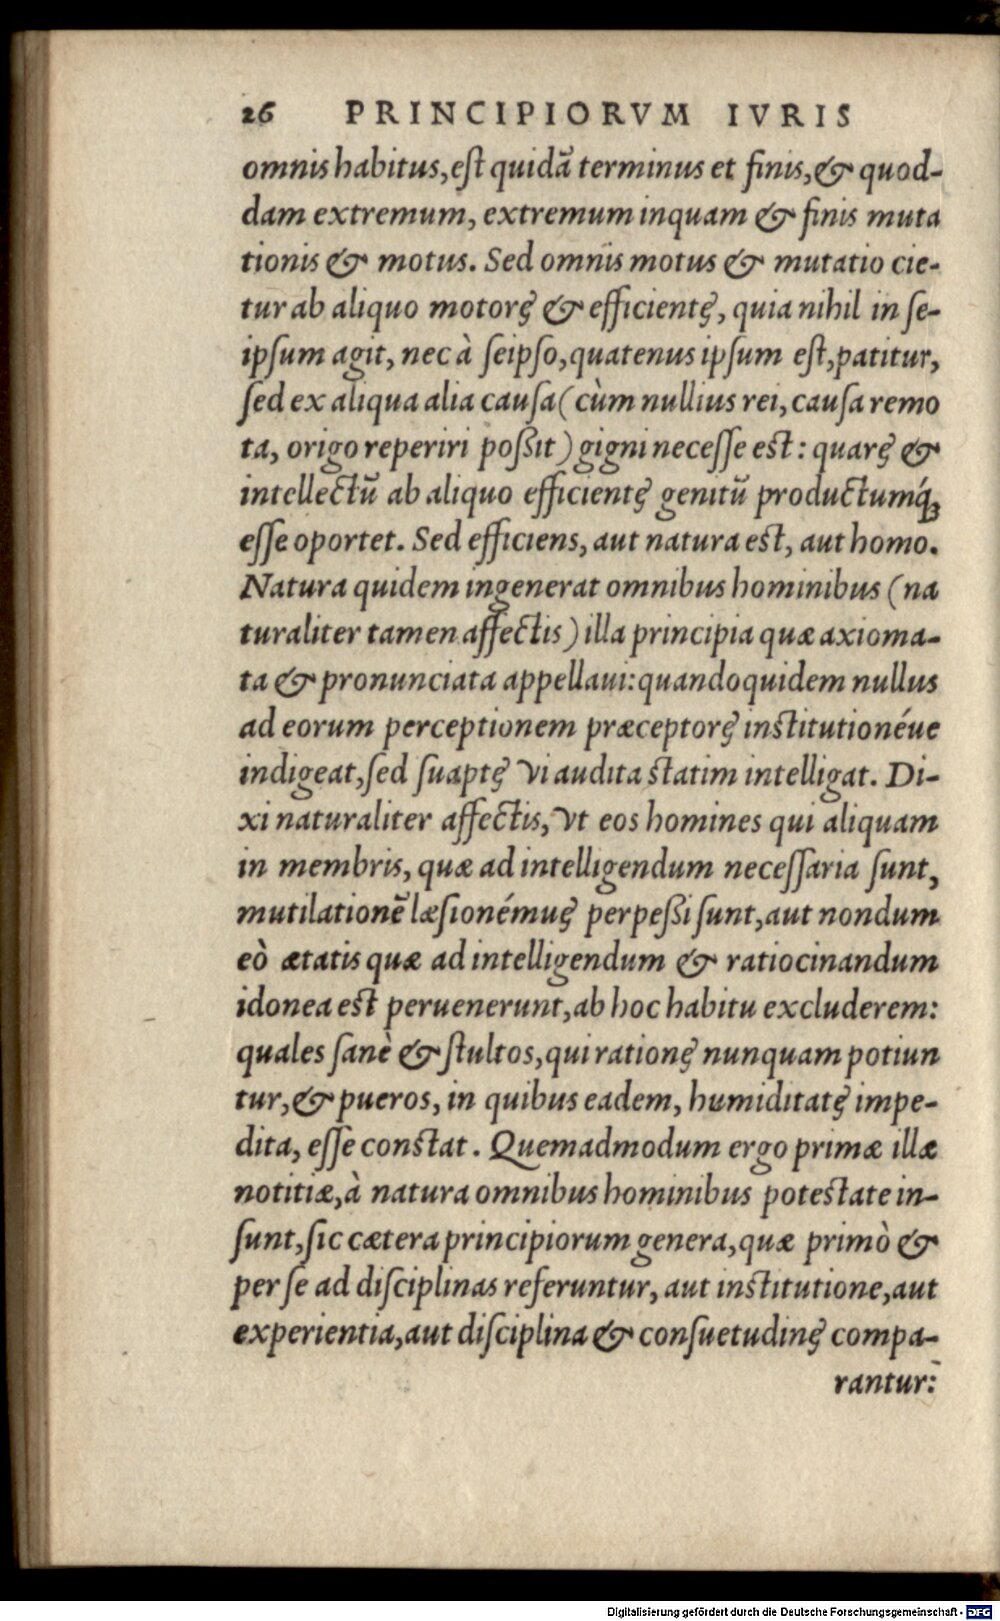 26 PRINCIPIORVM IVRIS
omnis habitus, eſt quidã terminus et finis, & quod-
dam extremum, extremum inquam & finis muta
tionis & motus. Sed omnis motus & mutatio cie-
tur ab aliquo motore & efficiente, quia nihil in ſe-
ipſum agit, nec à ſeipſo, quatenus ipſum eſt, patitur,
ſed ex aliqua alia cauſa (cùm nullius rei, cauſa remo
ta, origo reperiri poßit) gigni neceſſe est: quare &
intellectũ ab aliquo efficiente genitũ productumq́₃
eſſe oportet. Sed efficiens, aut natura est, aut homo.
Natura quidem ingenerat omnibus hominibus (na
turaliter tamen affectis) illa principia quæ axioma-
ta & pronunciata appellaui: quandoquidem nullus
ad eorum perceptionem præceptore institutionéue
indigeat, ſed ſuapte vi audita statim intelligat. Di-
xi naturaliter affectis, vt eos homines qui aliquam
in membris, quæ ad intelligendum neceſſaria ſunt,
mutilationẽ læſionémue perpeßi ſunt, aut nondum
eò ætatis quæ ad intelligendum & ratiocinandum
idonea est peruenerunt, ab hoc habitu excluderem:
quales ſanè & ſtultos, qui ratione nunquam potiun
tur, & pueros, in quibus eadem, humiditate impe-
dita, eſſe constat. Quemadmodum ergo primæ illæ
notitiæ, à natura omnibus hominibus potestate in-
ſunt, ſic cætera principiorum genera, quæ primò &
per ſe ad diſciplinas referuntur, aut institutione, aut
experientia, aut diſciplina & conſuetudine compa-
rantur:
Digitalisierung gefördert durch die Deutsche Forschungsgemeinschaft - DFG